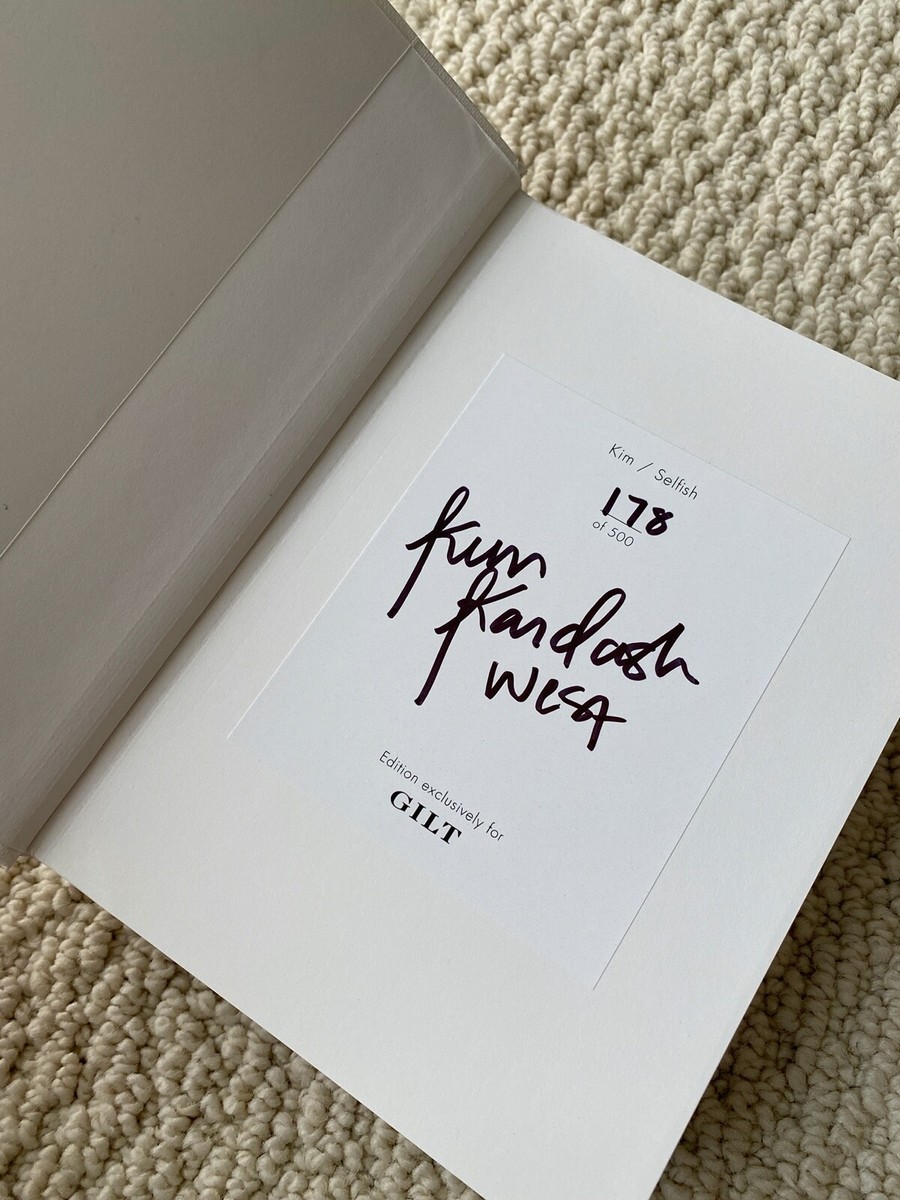 Kim / Selfish
178
of 500
Kim
Kardash
West
Edition exclusively for
GILT